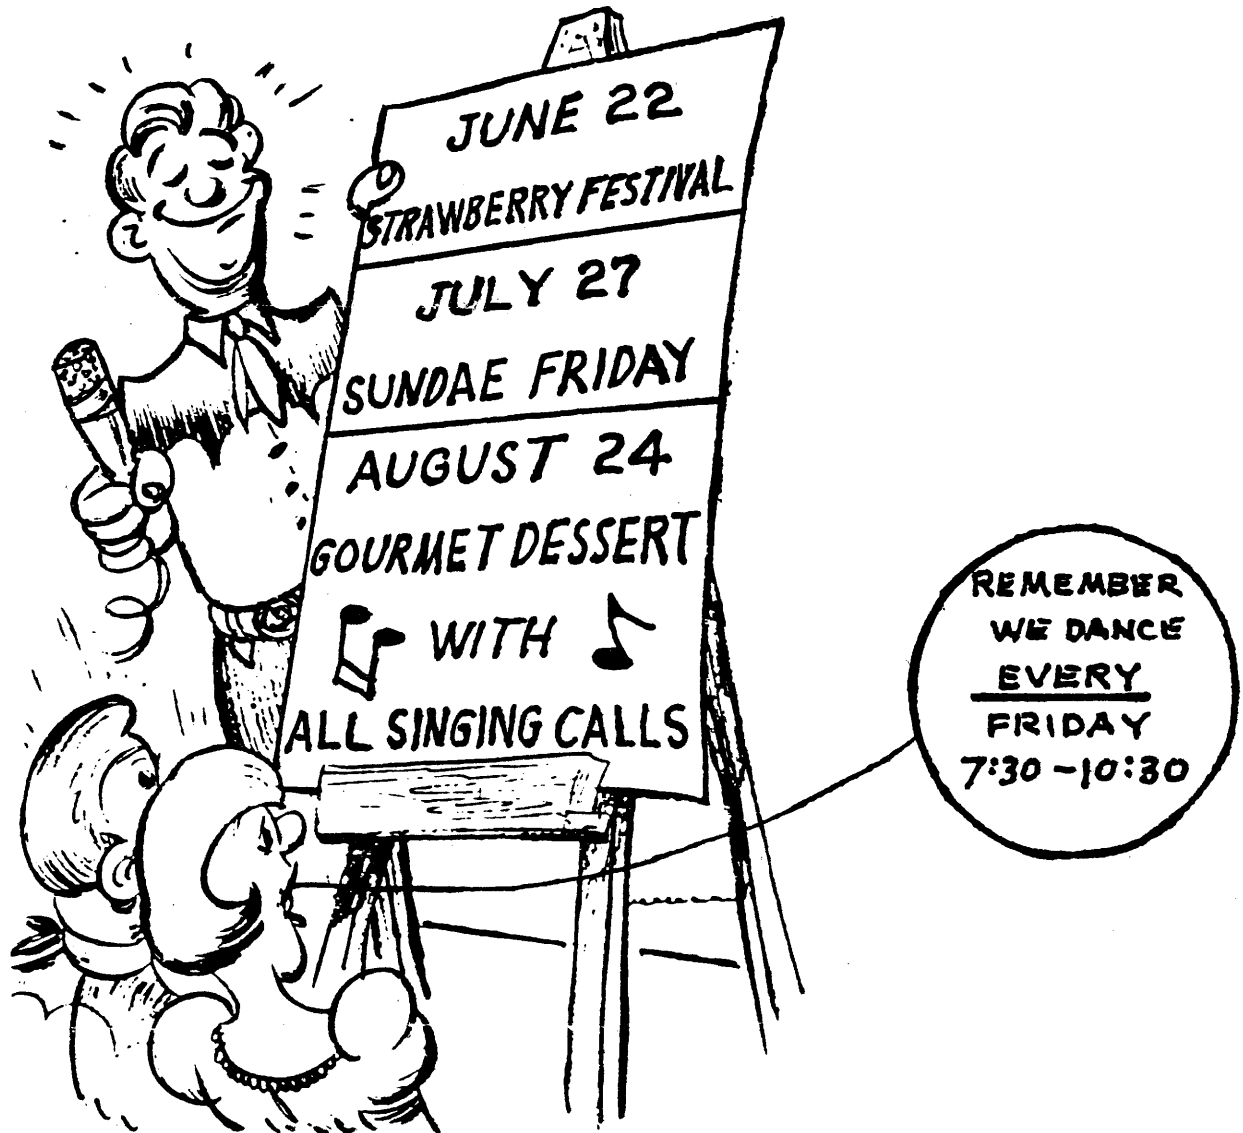 JUNE 22
STRAWBERRY FESTIVAL
JULY 27
SUNDAE FRIDAY
AUGUST 24
GOURMET DESSERT
WITH
ALL SINGING CALLS
REMEMBER
WE DANCE
EVERY
FRIDAY
7:30-10:30